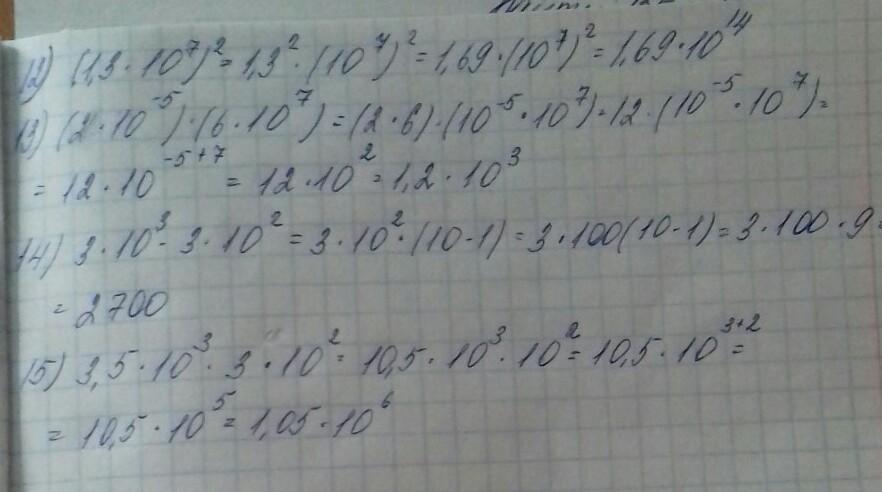 12) (1,3 · 10⁷)² = 1,3² · (10⁷)² = 1,69 · (10⁷)² = 1,69 · 10¹⁴
13) (2 · 10⁻⁵) · (6 · 10⁷) = (2 · 6) · (10⁻⁵ · 10⁷) = 12 · (10⁻⁵ · 10⁷) =
= 12 · 10⁻⁵⁺⁷ = 12 · 10² = 1,2 · 10³
14) 3 · 10³ - 3 · 10² = 3 · 10² · (10 - 1) = 3 · 100(10 - 1) = 3 · 100 · 9 =
= 2700
15) 3,5 · 10³ · 3 · 10² = 10,5 · 10³ · 10² = 10,5 · 10³⁺² =
= 10,5 · 10⁵ = 1,05 · 10⁶